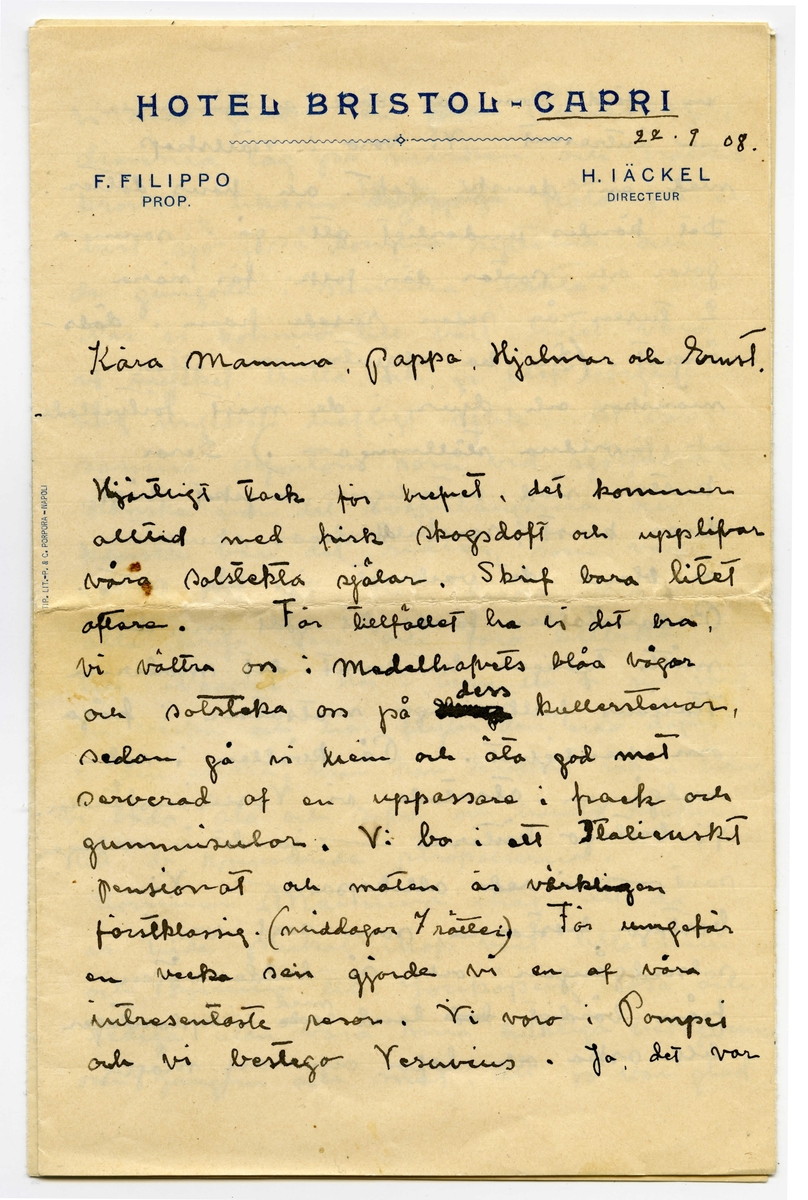 HOTEL BRISTOL-CAPRI
22.9 08.
F. FILIPPO
PROP.
H. IÄCKEL
DIRECTEUR
Kära Mamma, Pappa, Hjalmar och Ernst.
Hjärtligt tack för brefvet, det kommer
alltid med frisk skogsdoft och upplifvar
våra solstekta själar. Skrif bara litet
oftare. För tillfället ha vi det bra,
vi vältra oss i Medelhafvets blåa vågor
och solsteka oss på dess kullerstenar,
sedan gå vi hem och äta god mat
serverad af en uppassare i frack och
gummisulor. Vi bo i ett Italienskt
pensionat och maten är värkligen
förstklassig. (middagar 7 rätter) För ungefär
en vecka sen gjorde vi en af våra
intresentaste resor. Vi voro i Pompei
och vi bestego Vesuvius. Ja, det var
TIP. LIT.-R. & C. PORPORA-NAPOLI